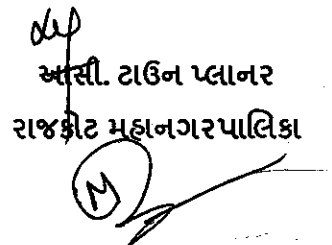 આસી. ટાઉન પ્લાનર
રાજકોટ મહાનગરપાલિકા
M